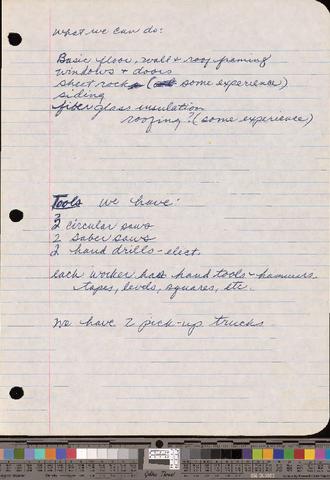 What we can do:
Basic floor, wall + roof framing
windows + doors
sheet rock (some experience)
siding
fiberglass insulation
roofing? (some experience)
Tools we have:
3 circular saws
2 saber saws
2 hand drills - elect.
each worker has hand tools - hammers
tapes, levels, squares, etc.
We have 2 pick-up trucks